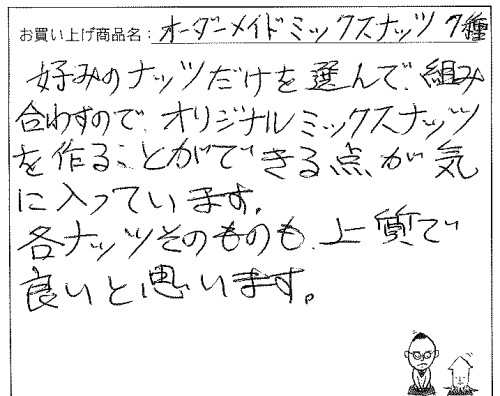 お買い上げ商品名：オーダーメイドミックスナッツ 7種
好みのナッツだけを選んで、組み
合わすので、オリジナルミックスナッツ
を作ることができる点が気
に入っています。
各ナッツそのものも、上質で
良いと思います。